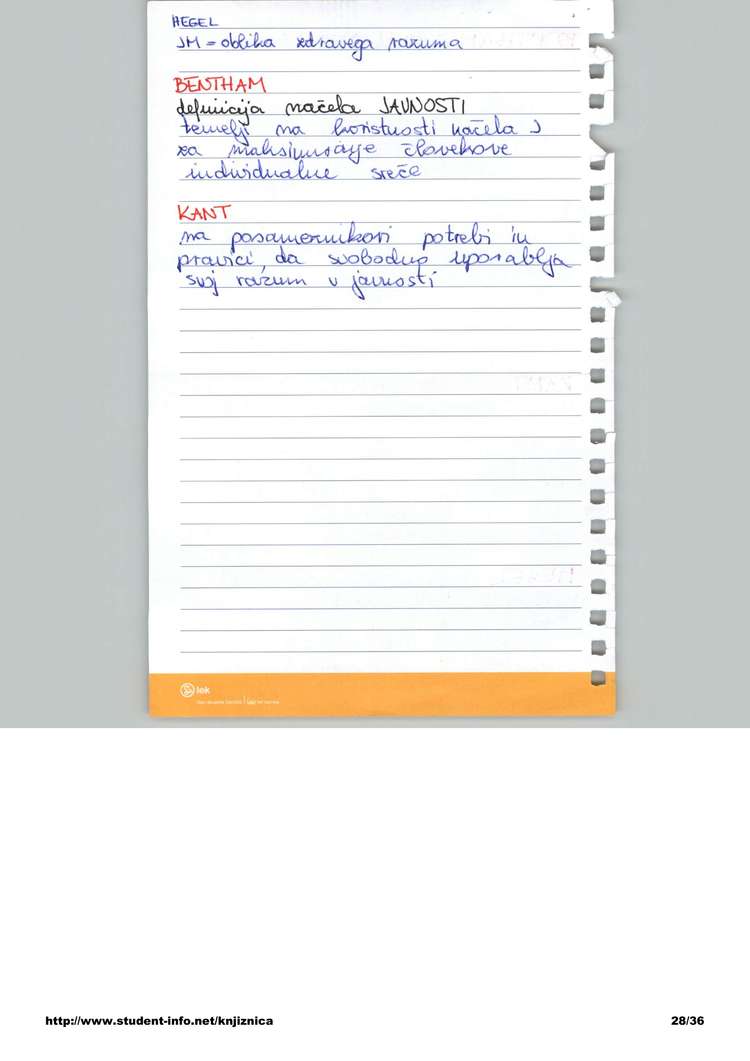 HEGEL
JM = oblika zdravega razuma
BENTHAM
definicija načela JAVNOSTI
temelji na koristnosti načela J
za maksimiranje človekove
individualne sreče
KANT
na posameznikovi potrebi in
pravici, da svobodno uporablja
svoj razum v javnosti
lek
http://www.student-info.net/knjiznica
28/36